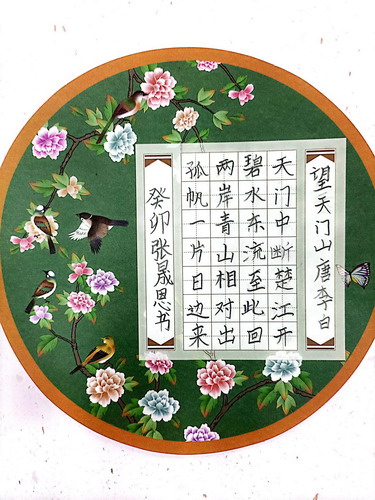 望天门山 唐 李白
天门中断楚江开
碧水东流至此回
两岸青山相对出
孤帆一片日边来
癸卯 张晟恩书